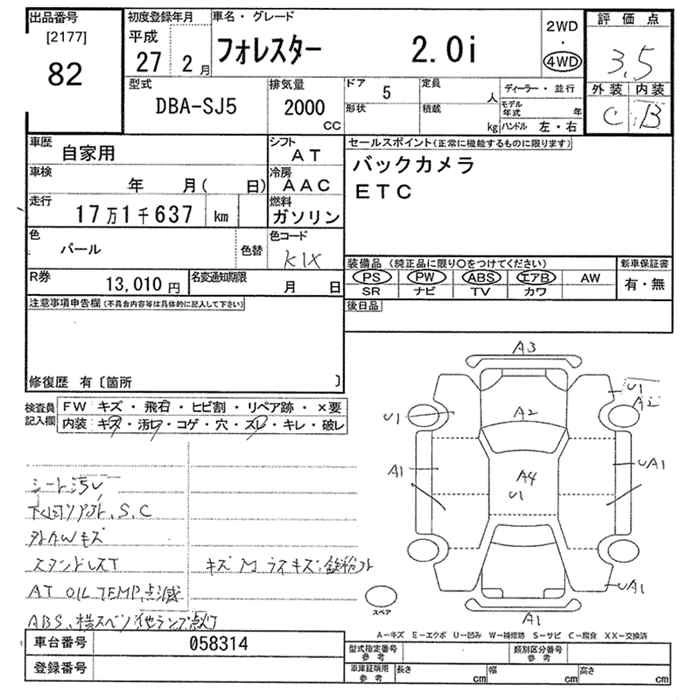 出品番号 初度登録年月 車名・グレード 評価点
[2177] 平成 フォレスター 2.0i 2WD
82 27 2月 ・ 3.5
4WD
型式 排気量 ドア 5 定員 人 ディーラー・並行 外装 内装
DBA-SJ5 2000 CC 形状 積載 kg モデル年式 年 C B
ハンドル 左・右
車歴 自家用 シフト AT セールスポイント(正常に機能するものに限ります)
車検 年 月( 日) 冷房 AAC バックカメラ
走行 17万1千637 km 燃料 ガソリン ETC
色 パール 色替 色コード K1X
装備品 (純正品に限り○をつけてください) 新車保証書
R券 13,010円 名変通知期限 月 日 PS PW ABS エアB AW 有・無
SR ナビ TV カワ
注意事項申告欄(不具合内容等は具体的に記入して下さい) 後日品
修復歴 有〔箇所 〕
検査員 FW キズ・飛石・ヒビ割・リペア跡・×要
記入欄 内装:キズ・汚レ・コゲ・穴・スレ・キレ・破レ
A3
U1
A2
U1 A2
A1 UA1
A4
U1
シート汚レ
下回り S.C
外AWキズ
スタンドレスT
AT OIL TEMP.点滅
ABS、横スベリ他ランプ点灯
UA1
スペア
A1
A-キズ E-エクボ U-凹み W-補修跡 S-サビ C-腐食 XX-交換済
車台番号 058314 型式指定番号 参考 類別区分番号 参考
登録番号 車庫証明用 参考 長さ cm 幅 cm 高さ cm